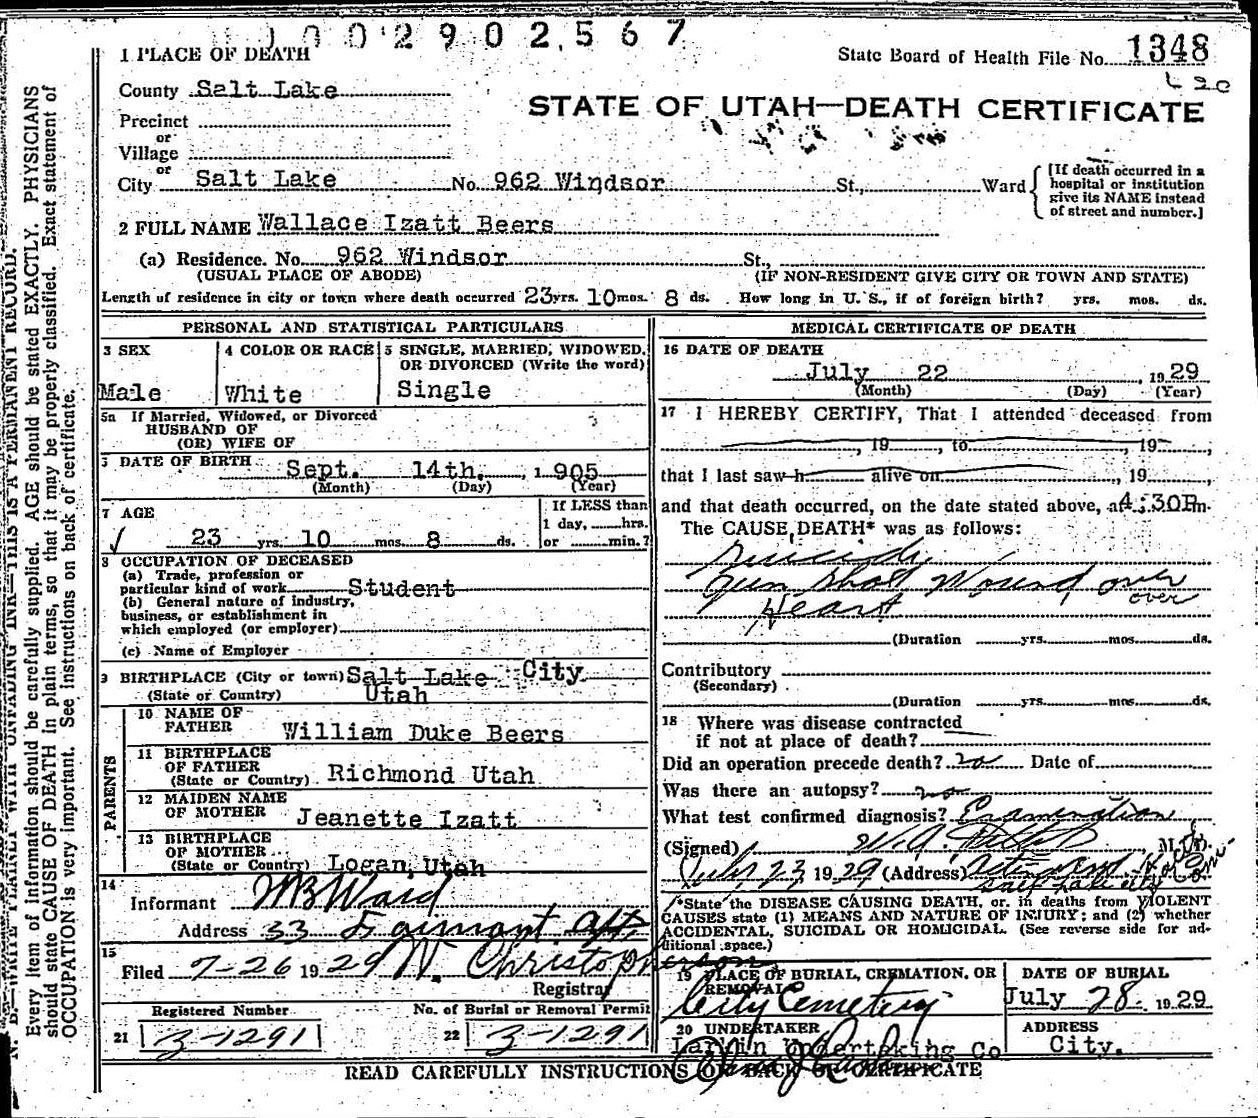 1002902567
1 PLACE OF DEATH
State Board of Health File No. 1348
County Salt Lake
STATE OF UTAH—DEATH CERTIFICATE
Precinct
or
Village
or
City Salt Lake No. 962 Windsor St., Ward
[If death occurred in a
hospital or institution
give its NAME instead
of street and number.]
2 FULL NAME Wallace Izatt Beers
(a) Residence. No. 962 Windsor St.,
(USUAL PLACE OF ABODE) (IF NON-RESIDENT GIVE CITY OR TOWN AND STATE)
Length of residence in city or town where death occurred 23 yrs. 10 mos. 8 ds. How long in U. S., if of foreign birth? yrs. mos. ds.
PERSONAL AND STATISTICAL PARTICULARS
3 SEX
Male
4 COLOR OR RACE
White
5 SINGLE, MARRIED, WIDOWED,
OR DIVORCED (Write the word)
Single
5a If Married, Widowed, or Divorced
HUSBAND OF
(OR) WIFE OF
DATE OF BIRTH Sept. 14th, 1905
(Month) (Day) (Year)
7 AGE
23 yrs. 10 mos. 8 ds.
If LESS than
1 day, hrs.
or min.?
8 OCCUPATION OF DECEASED
(a) Trade, profession or
particular kind of work Student
(b) General nature of industry,
business, or establishment in
which employed (or employer)
(c) Name of Employer
9 BIRTHPLACE (City or town) Salt Lake City
(State or Country) Utah
PARENTS
10 NAME OF
FATHER William Duke Beers
11 BIRTHPLACE
OF FATHER
(State or Country) Richmond Utah
12 MAIDEN NAME
OF MOTHER Jeanette Izatt
13 BIRTHPLACE
OF MOTHER
(State or Country) Logan, Utah
14
Informant WB Ward
Address 33 Fairmont Apt.
15
Filed 7-26 1929 N. Christopherson
Registrar
Registered Number No. of Burial or Removal Permit
21 3-1291 22 3-1291
MEDICAL CERTIFICATE OF DEATH
16 DATE OF DEATH
July 22, 1929
(Month) (Day) (Year)
17 I HEREBY CERTIFY, That I attended deceased from
, 19 , to , 19 ,
that I last saw h alive on , 19 ,
and that death occurred, on the date stated above, at 4:30P m.
The CAUSE DEATH* was as follows:
Suicide
Gun Shot Wound over
over
Heart
(Duration yrs. mos. ds.
Contributory
(Secondary)
(Duration yrs. mos. ds.
18 Where was disease contracted
if not at place of death?
Did an operation precede death? no Date of
Was there an autopsy? no
What test confirmed diagnosis? Examination
(Signed) M. D.
July 23 1929 (Address)
Salt Lake City
*State the DISEASE CAUSING DEATH, or, in deaths from VIOLENT
CAUSES state (1) MEANS AND NATURE OF INJURY; and (2) whether
ACCIDENTAL, SUICIDAL OR HOMICIDAL. (See reverse side for ad-
ditional space.)
19 PLACE OF BURIAL, CREMATION, OR
REMOVAL
City Cemetery
DATE OF BURIAL
July 28, 1929
20 UNDERTAKER
Larkin Undertaking Co
ADDRESS
City.
READ CAREFULLY INSTRUCTIONS ON BACK OF CERTIFICATE
Every item of information should be carefully supplied. AGE should be stated EXACTLY. PHYSICIANS
should state CAUSE OF DEATH in plain terms, so that it may be properly classified. Exact statement of
OCCUPATION is very important. See instructions on back of certificate.
N. B.—WRITE PLAINLY WITH UNFADING INK—THIS IS A PERMANENT RECORD.